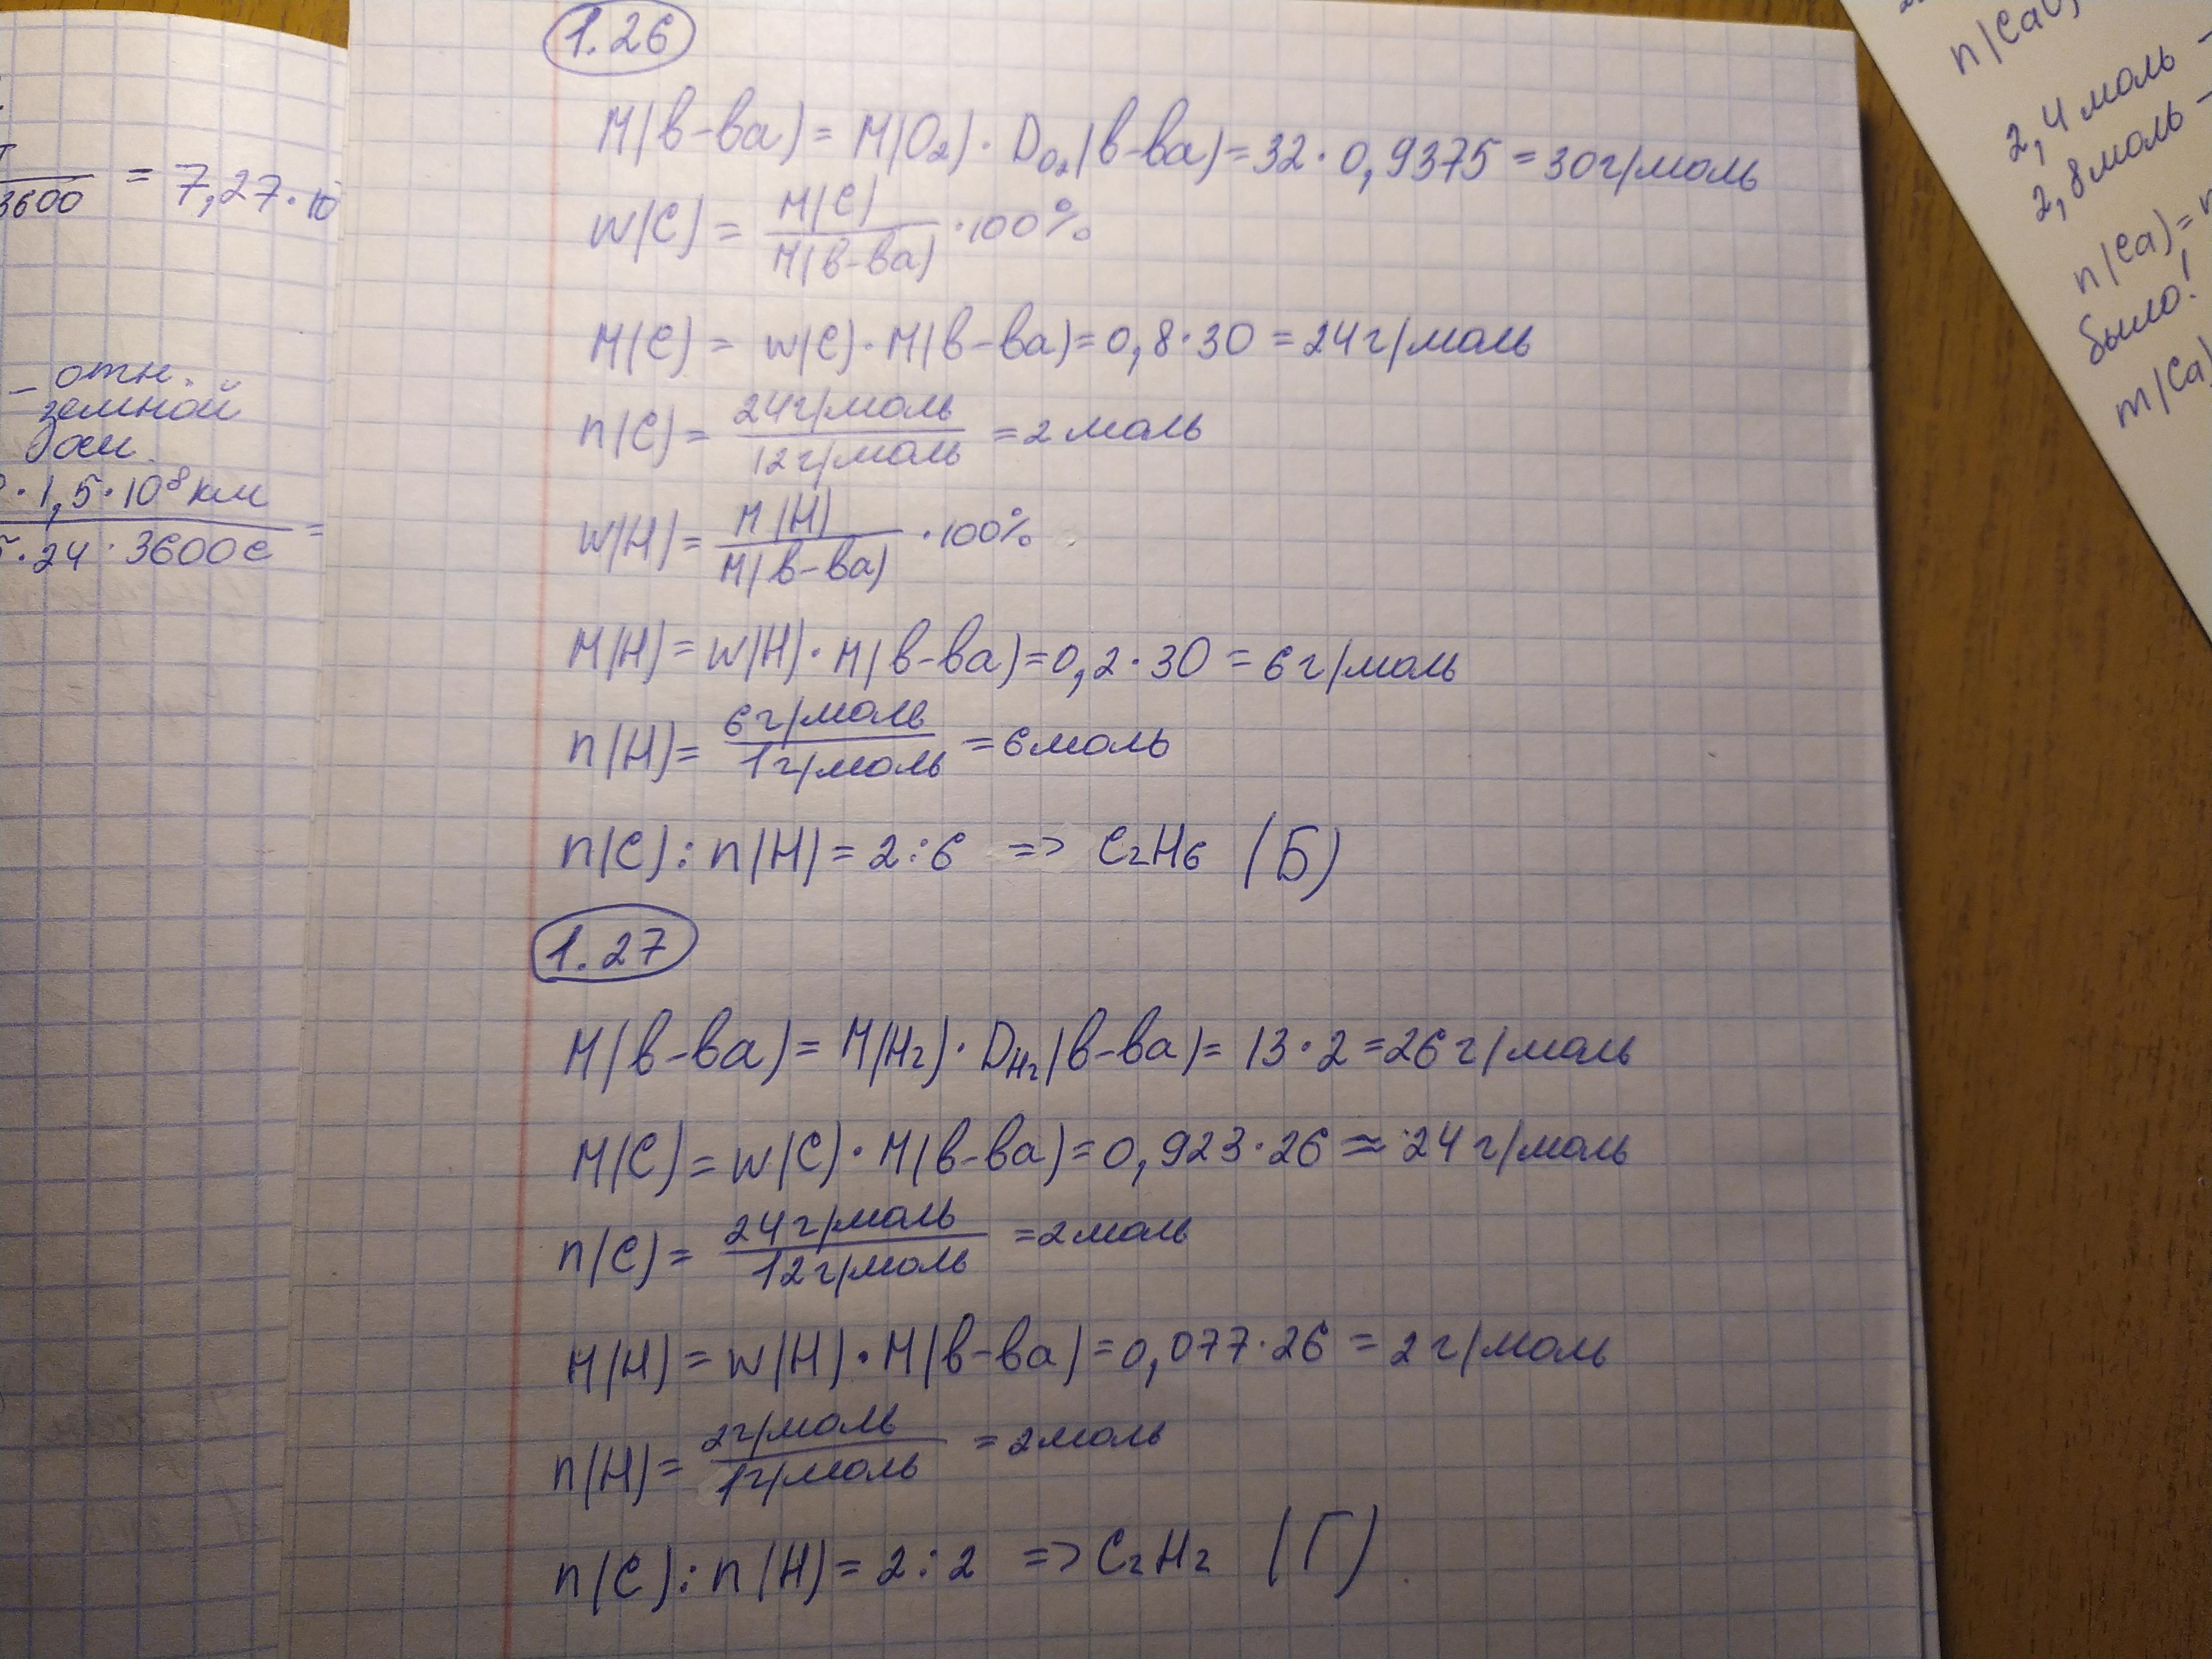 3600 = 7,27·10
- отн.
земной
·1,5·10⁸ км
·24·3600с =
1.26
M(в-ва) = M(O₂)·D_O₂(в-ва) = 32·0,9375 = 30г/моль
W(C) = M(C) / M(в-ва) ·100%
M(C) = W(C)·M(в-ва) = 0,8·30 = 24г/моль
n(C) = 24г/моль / 12г/моль = 2 моль
W(H) = M(H) / M(в-ва) ·100%
M(H) = W(H)·M(в-ва) = 0,2·30 = 6г/моль
n(H) = 6г/моль / 1г/моль = 6моль
n(C):n(H) = 2:6 => C₂H₆ (Б)
1.27
M(в-ва) = M(H₂)·D_H₂(в-ва) = 13·2 = 26г/моль
M(C) = W(C)·M(в-ва) = 0,923·26 ≈ 24г/моль
n(C) = 24г/моль / 12г/моль = 2моль
M(H) = W(H)·M(в-ва) = 0,077·26 = 2г/моль
n(H) = 2г/моль / 1г/моль = 2моль
n(C):n(H) = 2:2 => C₂H₂ (Г)
2,4 моль -
2,8 моль -
n(Ca) =
было!
m(Ca)